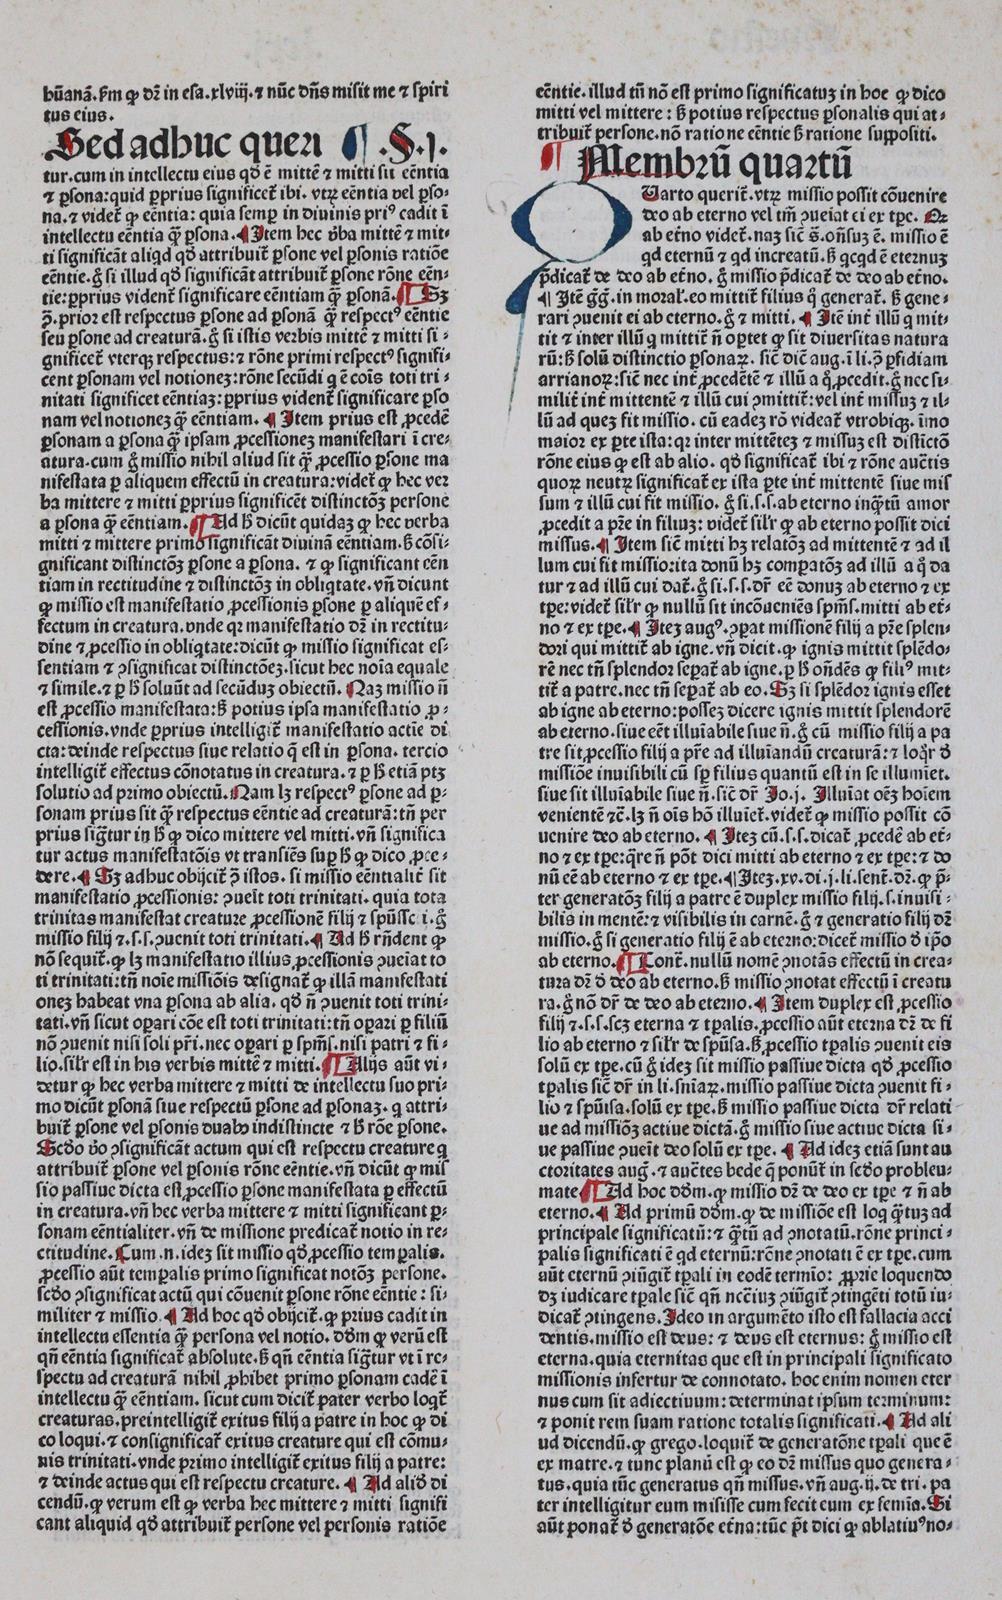 hũanã. Ꝓm ꝙ dꝛ in esa. xlviij. ⁊ nũc dñs misit me ⁊ spiri
tus eius.
Sed adhuc queri ¶ .S.j.
tur. cum in intellectu eius qð ẽ mittẽ ⁊ mitti sit eẽntia
⁊ ꝑsona: quid ꝓprius significet̃ ibi. vtꝛ eẽntia vel ꝑso-
na. ⁊ videt̃ ꝙ eẽntia: quia semꝑ in diuinis pri⁹ cadit ĩ
intellectu eẽntia q̃ꝫ ꝑsona. ¶ Item hec v̓ba mittẽ ⁊ mit-
ti significãt aliqd qð attribuit̃ ꝑsone vel ꝑsonis ratiõe
eẽntie. g̃ si illud qð significãt attribuit̃ ꝑsone rõne eẽn-
tie: ꝓprius vident̃ significare eẽntiam q̃ꝫ ꝑsonã. ¶ Sꝫ
ↄ̃. prior est respectus ꝑsone ad ꝑsonã q̃ꝫ respect⁹ eẽntie
seu ꝑsone ad creaturã. g̃ si istis verbis mittẽ ⁊ mitti si-
gnificet̃ vterqꝫ respectus: ⁊ rõne primi respect⁹ signifi-
cent ꝑsonam vel notioneꝫ: rõne secũdi q ẽ cõis toti tri-
nitati significet eẽntiaꝫ: ꝓprius vident̃ significare ꝑso
nam vel notioneꝫ q̃ꝫ eẽntiam. ¶ Item prius est ꝓcedẽ
ꝑsonam a ꝑsona q̃ꝫ ipsam ꝓcessioneꝫ manifestari ĩ cre-
atura. cum g̃ missio nihil aliud sit q̃ꝫ ꝓcessio ꝑsone ma
nifestata ꝑ aliquem effectũ in creatura: videt̃ ꝙ hec ver
ba mittere ⁊ mitti ꝓprius significẽt distinctõꝫ persone
a ꝑsona q̃ꝫ eẽntiam. ¶ Ad h̃ dicũt quidaꝫ ꝙ hec verba
mitti ⁊ mittere primo significãt diuinã eẽntiam. ꝫ cõsi-
gnificant distinctõꝫ ꝑsone a ꝑsona. ⁊ ꝙ significant eẽn
tiam in rectitudine ⁊ distinctõꝫ in obliqtate. vñ dicunt
ꝙ missio est manifestatio ꝓcessionis ꝑsone ꝑ aliquẽ ef-
fectum in creatura. vnde qꝛ manifestatio dꝛ in rectitu-
dine ⁊ ꝓcessio in obliqtate: dicũt ꝙ missio significat es-
sentiam ⁊ ↄsignificat distinctõeꝫ. sicut hec noĩa equale
⁊ simile. ⁊ ꝑ h̃ soluũt ad secũduꝫ obiectũ. Naꝫ missio ñ
est ꝓcessio manifestata: ꝫ potius ipsa manifestatio ꝓ-
cessionis. vnde ꝓprius intelligit̃ manifestatio actie di
cta: deinde respectus siue relatio q̃ est in ꝑsona. tercio
intelligit̃ effectus cõnotatus in creatura. ⁊ ꝑ h̃ etiã ptꝫ
solutio ad primo obiectũ. Nam lꝫ respect⁹ ꝑsone ad ꝑ-
sonam prius sit q̃ꝫ respectus eẽntie ad creaturã: tñ per
prius sigt̃ur in h̃ ꝙ dico mittere vel mitti. vñ significa
tur actus manifestatõis vt transiẽs suꝑ h̃ ꝙ dico ꝓce-
dere. ¶ Sꝫ adhuc obijcit̃ ↄ̃ istos. si missio eẽntialit̃ sit
manifestatio ꝓcessionis: ↄueĩt toti trinitati. quia tota
trinitas manifestat creature ꝓcessionẽ filij ⁊ spũssc̃i. g̃
missio filij ⁊.s.s. ↄuenit toti trinitati. ¶ Ad h̃ rñdent ꝙ
nõ sequit̃. ꝙ lꝫ manifestatio illius ꝓcessionis ↄueiat to
ti trinitati: tñ noĩe missiõis designat̃ ꝙ illã manifestati
oneꝫ habeat vna ꝑsona ab alia. qð ñ ↄuenit toti trini-
tati. vñ sicut oꝑari cõe est toti trinitati: tñ oꝑari ꝑ filiũ
nõ ↄuenit nisi soli pr̃i. nec oꝑari ꝑ spm̃s. nisi patri ⁊ fi-
lio. silr̃ est in his verbis mittẽ ⁊ mitti. ¶ Alijs aũt vi-
detur ꝙ hec verba mittere ⁊ mitti de intellectu suo pri-
mo dicũt ꝑsonã siue respectũ ꝑsone ad ꝑsonaꝫ. q̃ attri-
buit̃ ꝑsone vel ꝑsonis duabꝫ indistincte ⁊ h̃ rõe ꝑsone.
Secðo v̓o ↄsignificãt actum qui est respectu creature q̃
attribuit̃ ꝑsone vel ꝑsonis rõne eẽntie. vñ dicũt ꝙ mis
sio passiue dicta est ꝓcessio ꝑsone manifestata ꝑ effectũ
in creatura. vñ hec verba mittere ⁊ mitti significant ꝑ-
sonam eẽntialiter. vñ de missione predicat̃ notio in re-
ctitudine. Cum.n. ideꝫ sit missio qð ꝓcessio temꝑalis.
ꝓcessio aũt temꝑalis primo significat notõꝫ persone.
secðo ↄsignificat actũ qui cõuenit ꝑsone rõne eẽntie: si-
militer ⁊ missio. ¶ Ad hoc qð obijcit̃. ꝙ prius cadit in
intellectu essentia q̃ꝫ persona vel notio. dõm ꝙ verũ est
qñ eẽntia significat̃ absolute. ꝫ qñ eẽntia sigt̃ur vt ĩ re-
spectu ad creaturã nihil ꝓhibet primo ꝑsonam cadẽ ĩ
intellectu q̃ꝫ eẽntiam. sicut cum dicit̃ pater verbo loqt̃
creaturas. preintelligit̃ exitus filij a patre in hoc ꝙ di
co loqui. ⁊ consignificat̃ exitus creature qui est cõmu-
nis trinitati. vnde primo intelligit̃ exitus filij a patre:
⁊ deinde actus qui est respectu creature. ¶ Ad aliðð di
cendũ. ꝙ verum est ꝙ verba hec mittere ⁊ mitti signifi
cant aliquid qð attribuit̃ persone vel personis ratiõe
eẽntie. illud tñ nõ est primo significatuꝫ in hoc ꝙ dico
mitti vel mittere: ꝫ potius respectus ꝑsonalis qui at-
tribuit̃ persone. nõ ratione eẽntie ꝫ ratione suppositi.
¶ Membrũ quartũ
Quarto querit̃. vtꝛ missio possit cõuenire
deo ab eterno vel tm̃ ↄueiat ei ex tꝑe. Qꝛ
ab et̃no videt̃. naꝫ sic̃ s. oñsuꝫ ẽ. missio ẽ
qd eternũ ⁊ qd increatũ. ꝫ qcqd ẽ eternuꝫ
p̃dicat̃ de deo ab et̃no. g̃ missio p̃dicat̃ de deo ab et̃no.
¶ Itẽ gg̃. in moral̃. eo mittit̃ filius q̊ generat̃. ꝫ gene-
rari ↄuenit ei ab eterno. g̃ ⁊ mitti. ¶ Itẽ int̃ illũ q mit-
tit ⁊ inter illũ q mittit̃ ñ oꝑtet ꝙ sit diuersitas natura
rũ: ꝫ solũ distinctio ꝑsonaꝝ. sic̃ diẽ aug. ĩ li. ↄ̃ ꝑfidiam
arrianoꝝ: sic̃ nec int̃ ꝓcedẽtẽ ⁊ illũ a q̊ ꝓcedit. g̃ nec si-
milit̃ int̃ mittentẽ ⁊ illũ cui ↄmittit̃: vel int̃ missuꝫ ⁊ il-
lũ ad queꝫ fit missio. cũ eadeꝫ rõ videat̃ vtrobiqꝫ. ĩmo
maior ex ꝑte ista: qꝛ inter mittẽteꝫ ⁊ missuꝫ est distinctõ
rõne eius ꝙ est ab alio. qð significat̃ ibi ⁊ rõne auctis
quoꝝ neutꝝ significat̃ ex ista ꝑte int̃ mittentẽ siue mis
sum ⁊ illũ cui fit missio. g̃ si.s.s. ab eterno inq̃tũ amor
ꝓcedit a pr̃e in filiuꝫ: videt̃ silr̃ ꝙ ab eterno possit dici
missus. ¶ Item sic̃ mitti hꝫ relatõꝫ ad mittentẽ ⁊ ad il
lum cui fit missio: ita donũ hꝫ comꝑatõꝫ ad illũ a q̊ da
tur ⁊ ad illũ cui dat̃. g̃ si.s.s. dr̃ eẽ donuꝫ ab eterno ⁊ ex
tꝑe: videt̃ silr̃ ꝙ nullũ sit incõueniẽs spm̃s. mitti ab et̃-
no ⁊ ex tꝑe. ¶ Iteꝫ aug⁹. ↄꝑat missionẽ filij a pr̃e splen-
dori qui mittit̃ ab igne. vñ dicit. ꝙ ignis mittit splẽdo-
rẽ nec tñ splendor seꝑat̃ ab igne. ꝑ h̃ oñdẽs ꝙ fili⁹ mit-
tit̃ a patre. nec tñ seꝑat̃ ab eo. Sꝫ si splẽdor ignis esset
ab igne ab eterno: posseꝫ dicere ignis mittit splendorẽ
ab eterno. siue eẽt illuĩabile siue ñ. g̃ cũ missio filij a pa
tre sit ꝓcessio filij a pr̃e ad illuĩandũ creaturã: ⁊ loqr̃ ð
missiõe inuisibili cũ sꝑ filius quantũ est in se illumĩet.
siue sit illuĩabile siue ñ. sic̃ dr̃ Jo.j. Illuĩat oẽꝫ hoĩem
venientẽ ⁊c̃. lꝫ ñ oĩs hõ illuĩet̃. videt̃ ꝙ missio possit cõ
uenire deo ab eterno. ¶ Iteꝫ cũ.s.s. dicat̃ ꝓcedẽ ab et̃-
no ⁊ ex tꝑe: q̃re ñ põt dici mitti ab eterno ⁊ ex tꝑe: ⁊ do
nũ eẽ ab eterno ⁊ ex tꝑe. ¶ Iteꝫ. xv. di. j. li. sent̃. dꝛ. ꝙ p̃-
ter generatõꝫ filij a patre ẽ duplex missio filij.s. inuisi-
bilis in mentẽ: ⁊ visibilis in carnẽ. g̃ ⁊ generatio filij dꝛ
missio. g̃ si generatio filij ẽ ab eterno: dicet̃ missio ð ip̃o
ab eterno. ¶ Cont̃. nullũ nomẽ ↄnotãs effectũ in crea-
tura dꝛ ð deo ab eterno. ꝫ missio ↄnotat effectũ ĩ creatu
ra. g̃ nõ dr̃ de deo ab eterno. ¶ Item duplex est ꝓcessio
filij ⁊.s.s. scꝫ eterna ⁊ tꝑalis. ꝓcessio aũt eterna dꝛ de fi
lio ab eterno ⁊ silr̃ de spũsa. ꝫ ꝓcessio tꝑalis ↄuenit eis
solũ ex tꝑe. cũ g̃ ideꝫ sit missio passiue dicta qð ꝓcessio
tꝑalis sic̃ dr̃ in li. sniaꝝ. missio passiue dicta ↄuenit fi-
lio ⁊ spũisa. solũ ex tꝑe. ꝫ missio passiue dicta dr̃ relati
ue ad missiõꝫ actiue dictã. g̃ missio siue actiue dicta si-
ue passiue ↄueĩt deo solũ ex tꝑe. ¶ Ad ideꝫ etiã sunt au
ctoritates aug̃. ⁊ auc̃tes bede q̃ ponũt̃ in secðo probleu-
mate ¶ Ad hoc dõm. ꝙ missio dꝛ de deo ex tꝑe ⁊ ñ ab
eterno. ¶ Ad primũ dõm. ꝙ de missiõe est loq q̃tuꝫ ad
principale significatũ: ⁊ q̃tũ ad ↄnotatũ. rõne princi-
palis significati ẽ qd eternũ: rõne ↄnotati ẽ ex tꝑe. cum
aũt eternũ ↄiũgit̃ tꝑali in eodẽ termĩo: ꝓprie loquendo
dꝫ iudicare tꝑale sic̃ qñ nc̃eiuꝫ ↄiũgit̃ ↄtingẽti totũ iu-
dicat̃ ↄtingens. Ideo in argumẽto isto est fallacia acci
dentis. missio est deus: ⁊ deus est eternus: g̃ missio est
eterna. quia eternitas que est in principali significato
missionis infertur de connotato. hoc enim nomen eter
nus cum sit adiectiuum: determinat ipsum terminum:
⁊ ponit rem suam ratione totalis significati. ¶ Ad ali
ud dicendũ. ꝙ grego. loquit̃ de generatõne tꝑali que ẽ
ex matre. ⁊ tunc planũ est ꝙ eo dꝛ missus quo genera-
tus. quia tũc generatus qñ missus. vñ aug. ij. de tri. pa
ter intelligitur eum misisse cum fecit eum ex femĩa. Si
aũt ponat̃ ð generatõe et̃na: tũc p̃t dici ꝙ ablatiu⁹ no-